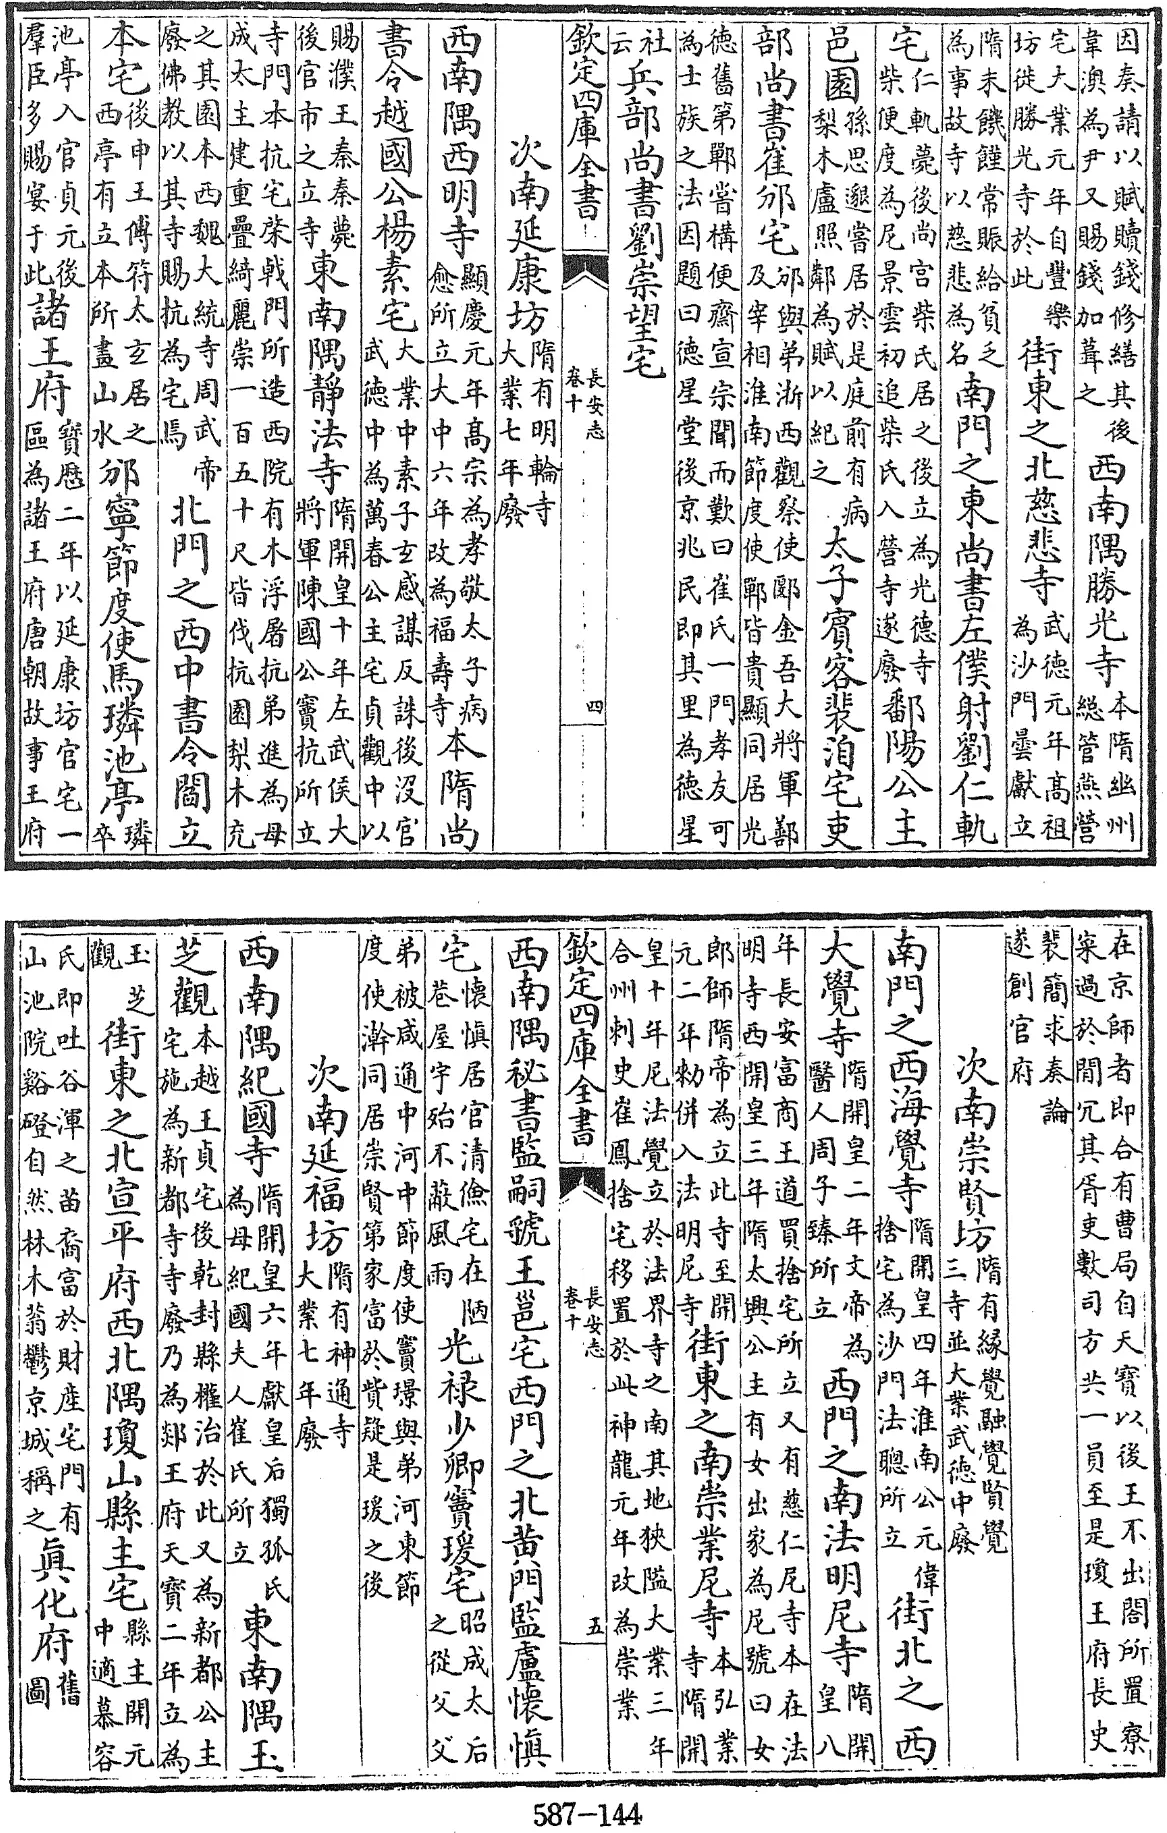 因奏請以賦贖錢修繕其後韋澳為尹又賜錢加葺之西南隅勝光寺本隋幽州總管燕營
宅大業元年自豐樂坊徙勝光寺於此街東之北慈悲寺武德元年高祖為沙門曇獻立
隋末饑饉常賑給貧乏為事故寺以慈悲為名南門之東尚書左僕射劉仁軌
宅仁軌薨後尚宮柴氏居之後立為光德寺柴便度為尼景雲初追柴氏入營寺遂廢鄱陽公主
邑園孫思邈嘗居於是庭前有病梨木盧照鄰為賦以紀之太子賓客裴洎宅吏
部尚書崔邠宅邠與弟浙西觀察使郾金吾大將軍鄯及宰相淮南節度使鄲皆貴顯同居光
德舊第鄲嘗構便齋宣宗聞而歎曰崔氏一門孝友可為士族之法因題曰德星堂後京兆民即其里為德星
社云兵部尚書劉崇望宅
欽定四庫全書 長安志 卷十 四
次南延康坊隋有明輪寺大業七年廢
西南隅西明寺顯慶元年高宗為孝敬太子病愈所立大中六年改為福壽寺本隋尚
書令越國公楊素宅大業中素子玄感謀反誅後沒官武德中為萬春公主宅貞觀中以
賜濮王泰泰薨後官市之立寺東南隅靜法寺隋開皇十年左武侯大將軍陳國公竇抗所立
寺門本抗宅棨戟門所造西院有木浮屠抗弟進為母成太主建重疊綺麗崇一百五十尺皆伐抗園梨木充
之其園本西魏大統寺周武帝廢佛教以其寺賜抗為宅焉北門之西中書令閻立
本宅後申王傅符太玄居之西亭有立本所畫山水邠寧節度使馬璘池亭璘卒
池亭入官貞元後羣臣多賜宴于此諸王府寶歷二年以延康坊官宅一區為諸王府唐朝故事王府
在京師者即合有曹局自天寶以後王不出閤所置寮寀過於閒冗其胥吏數司方共一員至是瓊王府長史
裴簡求奏論遂創官府
次南崇賢坊隋有緣覺融覺賢覺三寺並大業武德中廢
南門之西海覺寺隋開皇四年淮南公元偉捨宅為沙門法聰所立街北之西
大覺寺隋開皇二年文帝為醫人周子臻所立西門之南法明尼寺隋開皇八
年長安富商王道買捨宅所立又有慈仁尼寺本在法明寺西開皇三年隋太興公主有女出家為尼號曰女
郎師隋帝為立此寺至開元二年勑併入法明尼寺街東之南崇業尼寺本弘業寺隋開
皇十年尼法覺立於法界寺之南其地狹隘大業三年合州刺史崔鳳捨宅移置於此神龍元年改為崇業
欽定四庫全書 長安志 卷十 五
西南隅秘書監嗣虢王邕宅西門之北黄門監盧懷慎
宅懷慎居官清儉宅在陋巷屋宇殆不蔽風雨光祿少卿竇瑗宅昭成太后之從父父
弟被咸通中河中節度使竇璟與弟河東節度使澣同居崇賢第家富於貲疑是瑗之後
次南延福坊隋有神通寺大業七年廢
西南隅紀國寺隋開皇六年獻皇后獨孤氏為母紀國夫人崔氏所立東南隅玉
芝觀本越王貞宅後乾封縣權治於此又為新都公主宅施為新都寺寺廢乃為郯王府天寶二年立為
玉芝觀街東之北宣平府西北隅瓊山縣主宅縣主開元中適慕容
氏即吐谷渾之苗裔富於財産宅門有山池院谿磴自然林木蓊鬱京城稱之真化府舊圖
587-144